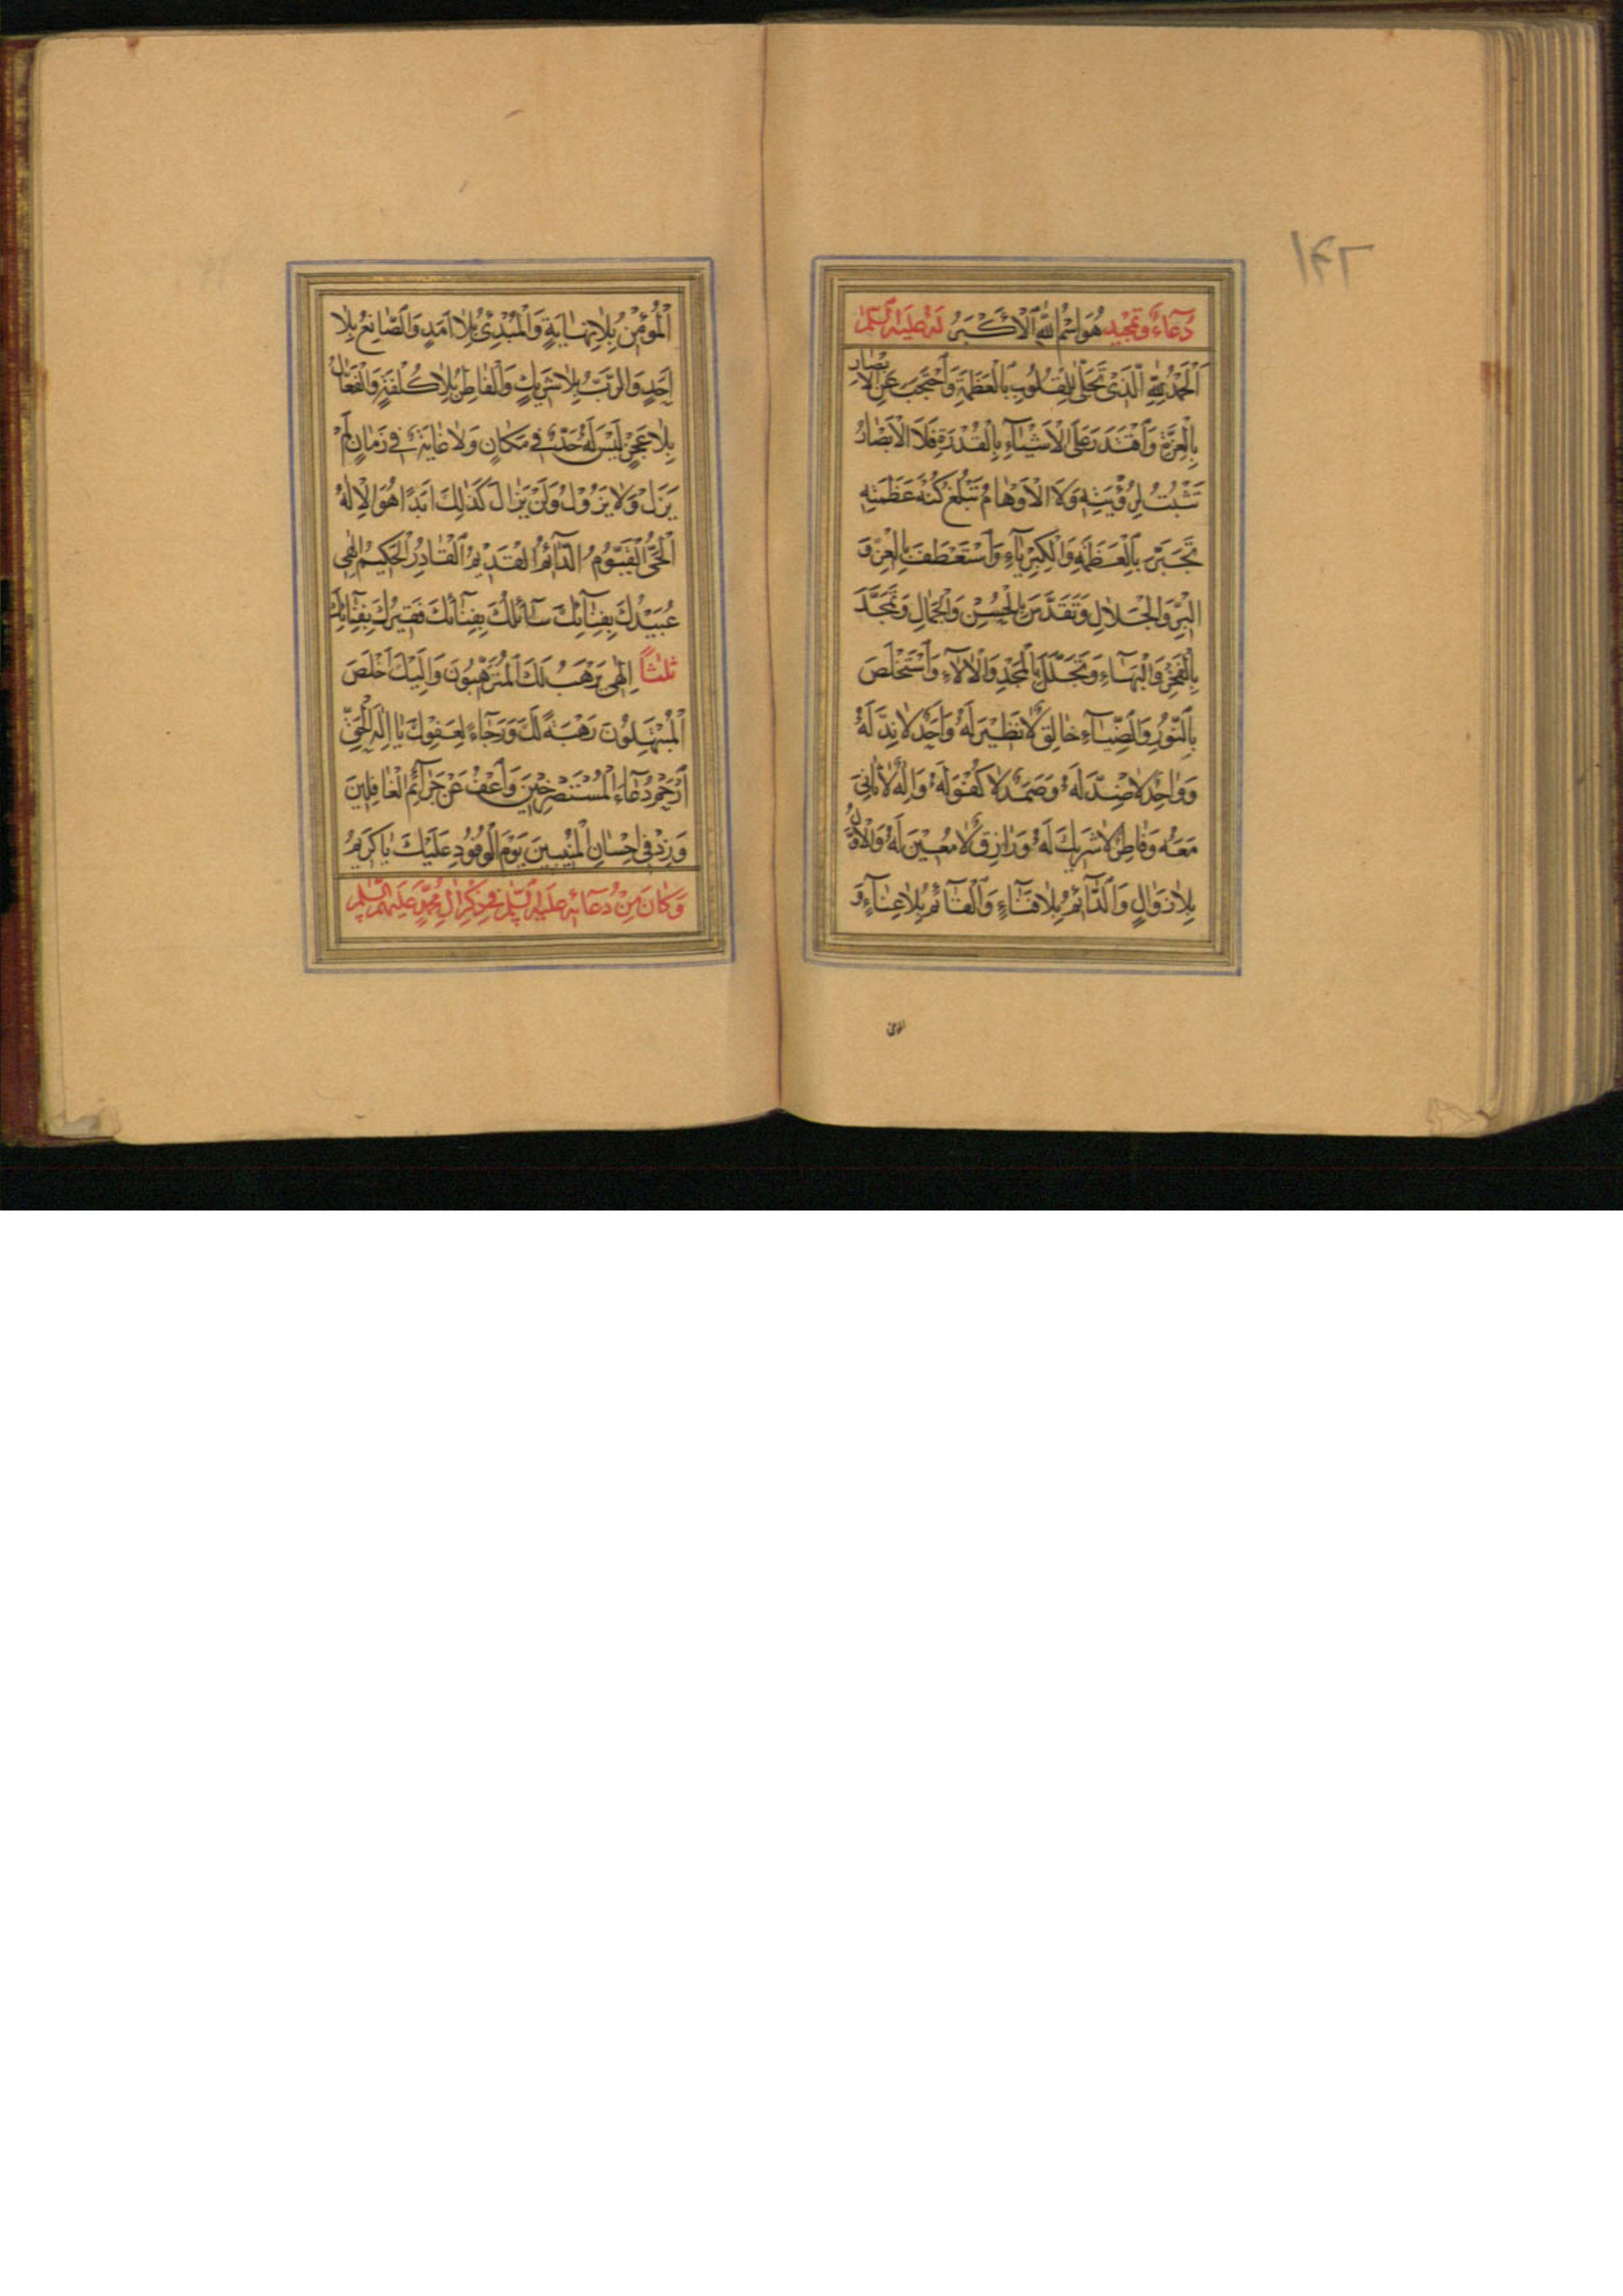 ۱۴۲
دُعَاءٌ وَتَمْجِيد هُوَ اسْمُ اللهِ الْأَكْبَرُ لَهُ عَلَيْهِ السَّلَامُ
اَلْحَمْدُ لِلّٰهِ الَّذِي تَجَلّٰى لِلْقُلُوبِ بِالْعَظَمَةِ وَاحْتَجَبَ عَنِ الْاَبْصَارِ
بِالْعِزَّةِ وَاقْتَدَرَ عَلَى الْاَشْيَاءِ بِالْقُدْرَةِ فَلَا الْاَبْصَارُ
تَثْبُتُ لِرُؤْيَتِهِ وَلَا الْاَوْهَامُ تَبْلُغُ كُنْهَ عَظَمَتِهِ
تَجَبَّرَ بِالْعَظَمَةِ وَالْكِبْرِيَاءِ وَاسْتَعْطَفَ بِالْعِزِّ وَ
الْبِرِّ وَالْجَلَالِ وَتَقَدَّسَ بِالْحُسْنِ وَالْجَمَالِ وَتَمَجَّدَ
بِالْفَخْرِ وَالْبَهَاءِ وَتَجَلَّلَ بِالْمَجْدِ وَالْاٰلَاءِ وَاسْتَخْلَصَ
بِالنُّورِ وَالضِّيَاءِ خَالِقٌ لَا نَظِيرَ لَهُ وَاَحَدٌ لَا نِدَّ لَهُ
وَوَاحِدٌ لَا ضِدَّ لَهُ وَصَمَدٌ لَا كُفْوَ لَهُ وَاِلٰهٌ لَا ثَانِيَ
مَعَهُ وَفَاطِرٌ لَا شَرِيكَ لَهُ وَرَازِقٌ لَا مُعِينَ لَهُ وَالْاَوَّلُ
بِلَا زَوَالٍ وَالدَّائِمُ بِلَا فَنَاءٍ وَالْقَائِمُ بِلَا عَنَاءٍ وَ
المؤمن
اَلْمُؤْمِنُ بِلَا نِهَايَةٍ وَالْمُبْدِئُ بِلَا اَمَدٍ وَالصَّانِعُ بِلَا
اَحَدٍ وَالرَّبُّ بِلَا شَرِيكٍ وَالْفَاطِرُ بِلَا كُلْفَةٍ وَالْفَعَّالُ
بِلَا عَجْزٍ لَيْسَ لَهُ حَدٌّ فِي مَكَانٍ وَلَا غَايَةٌ فِي زَمَانٍ لَمْ
يَزَلْ وَلَا يَزُولُ وَلَنْ يَزَالَ كَذٰلِكَ اَبَدًا هُوَ الْاِلٰهُ
الْحَيُّ الْقَيُّومُ الدَّائِمُ الْقَدِيمُ الْقَادِرُ الْحَكِيمُ اِلٰهِي
عُبَيْدُكَ بِفِنَائِكَ سَائِلُكَ بِفِنَائِكَ فَقِيرُكَ بِفِنَائِكَ
ثلثاً اِلٰهِي لَكَ يَرْهَبُ الْمُتَرَهِّبُونَ وَاِلَيْكَ اَخْلَصَ
الْمُبْتَهِلُونَ رَهْبَةً لَكَ وَرَجَاءً لِعَفْوِكَ يَا اِلٰهَ الْحَقِّ
ارْحَمْ دُعَاءَ الْمُسْتَصْرِخِينَ وَاعْفُ عَنْ جَرَائِمِ الْغَافِلِينَ
وَزِدْ فِي اِحْسَانِ الْمُنِيبِينَ يَوْمَ الْوُفُودِ عَلَيْكَ يَا كَرِيمُ
وَكَانَ مِنْ دُعَائِهِ عَلَيْهِ السَّلَامُ فِي ذِكْرِ اٰلِ مُحَمَّدٍ عَلَيْهِمُ السَّلَامُ